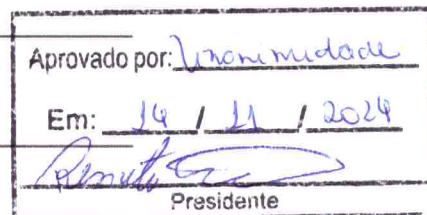 Aprovado por: Unanimidade
Em: 14 / 11 / 2024
Presidente